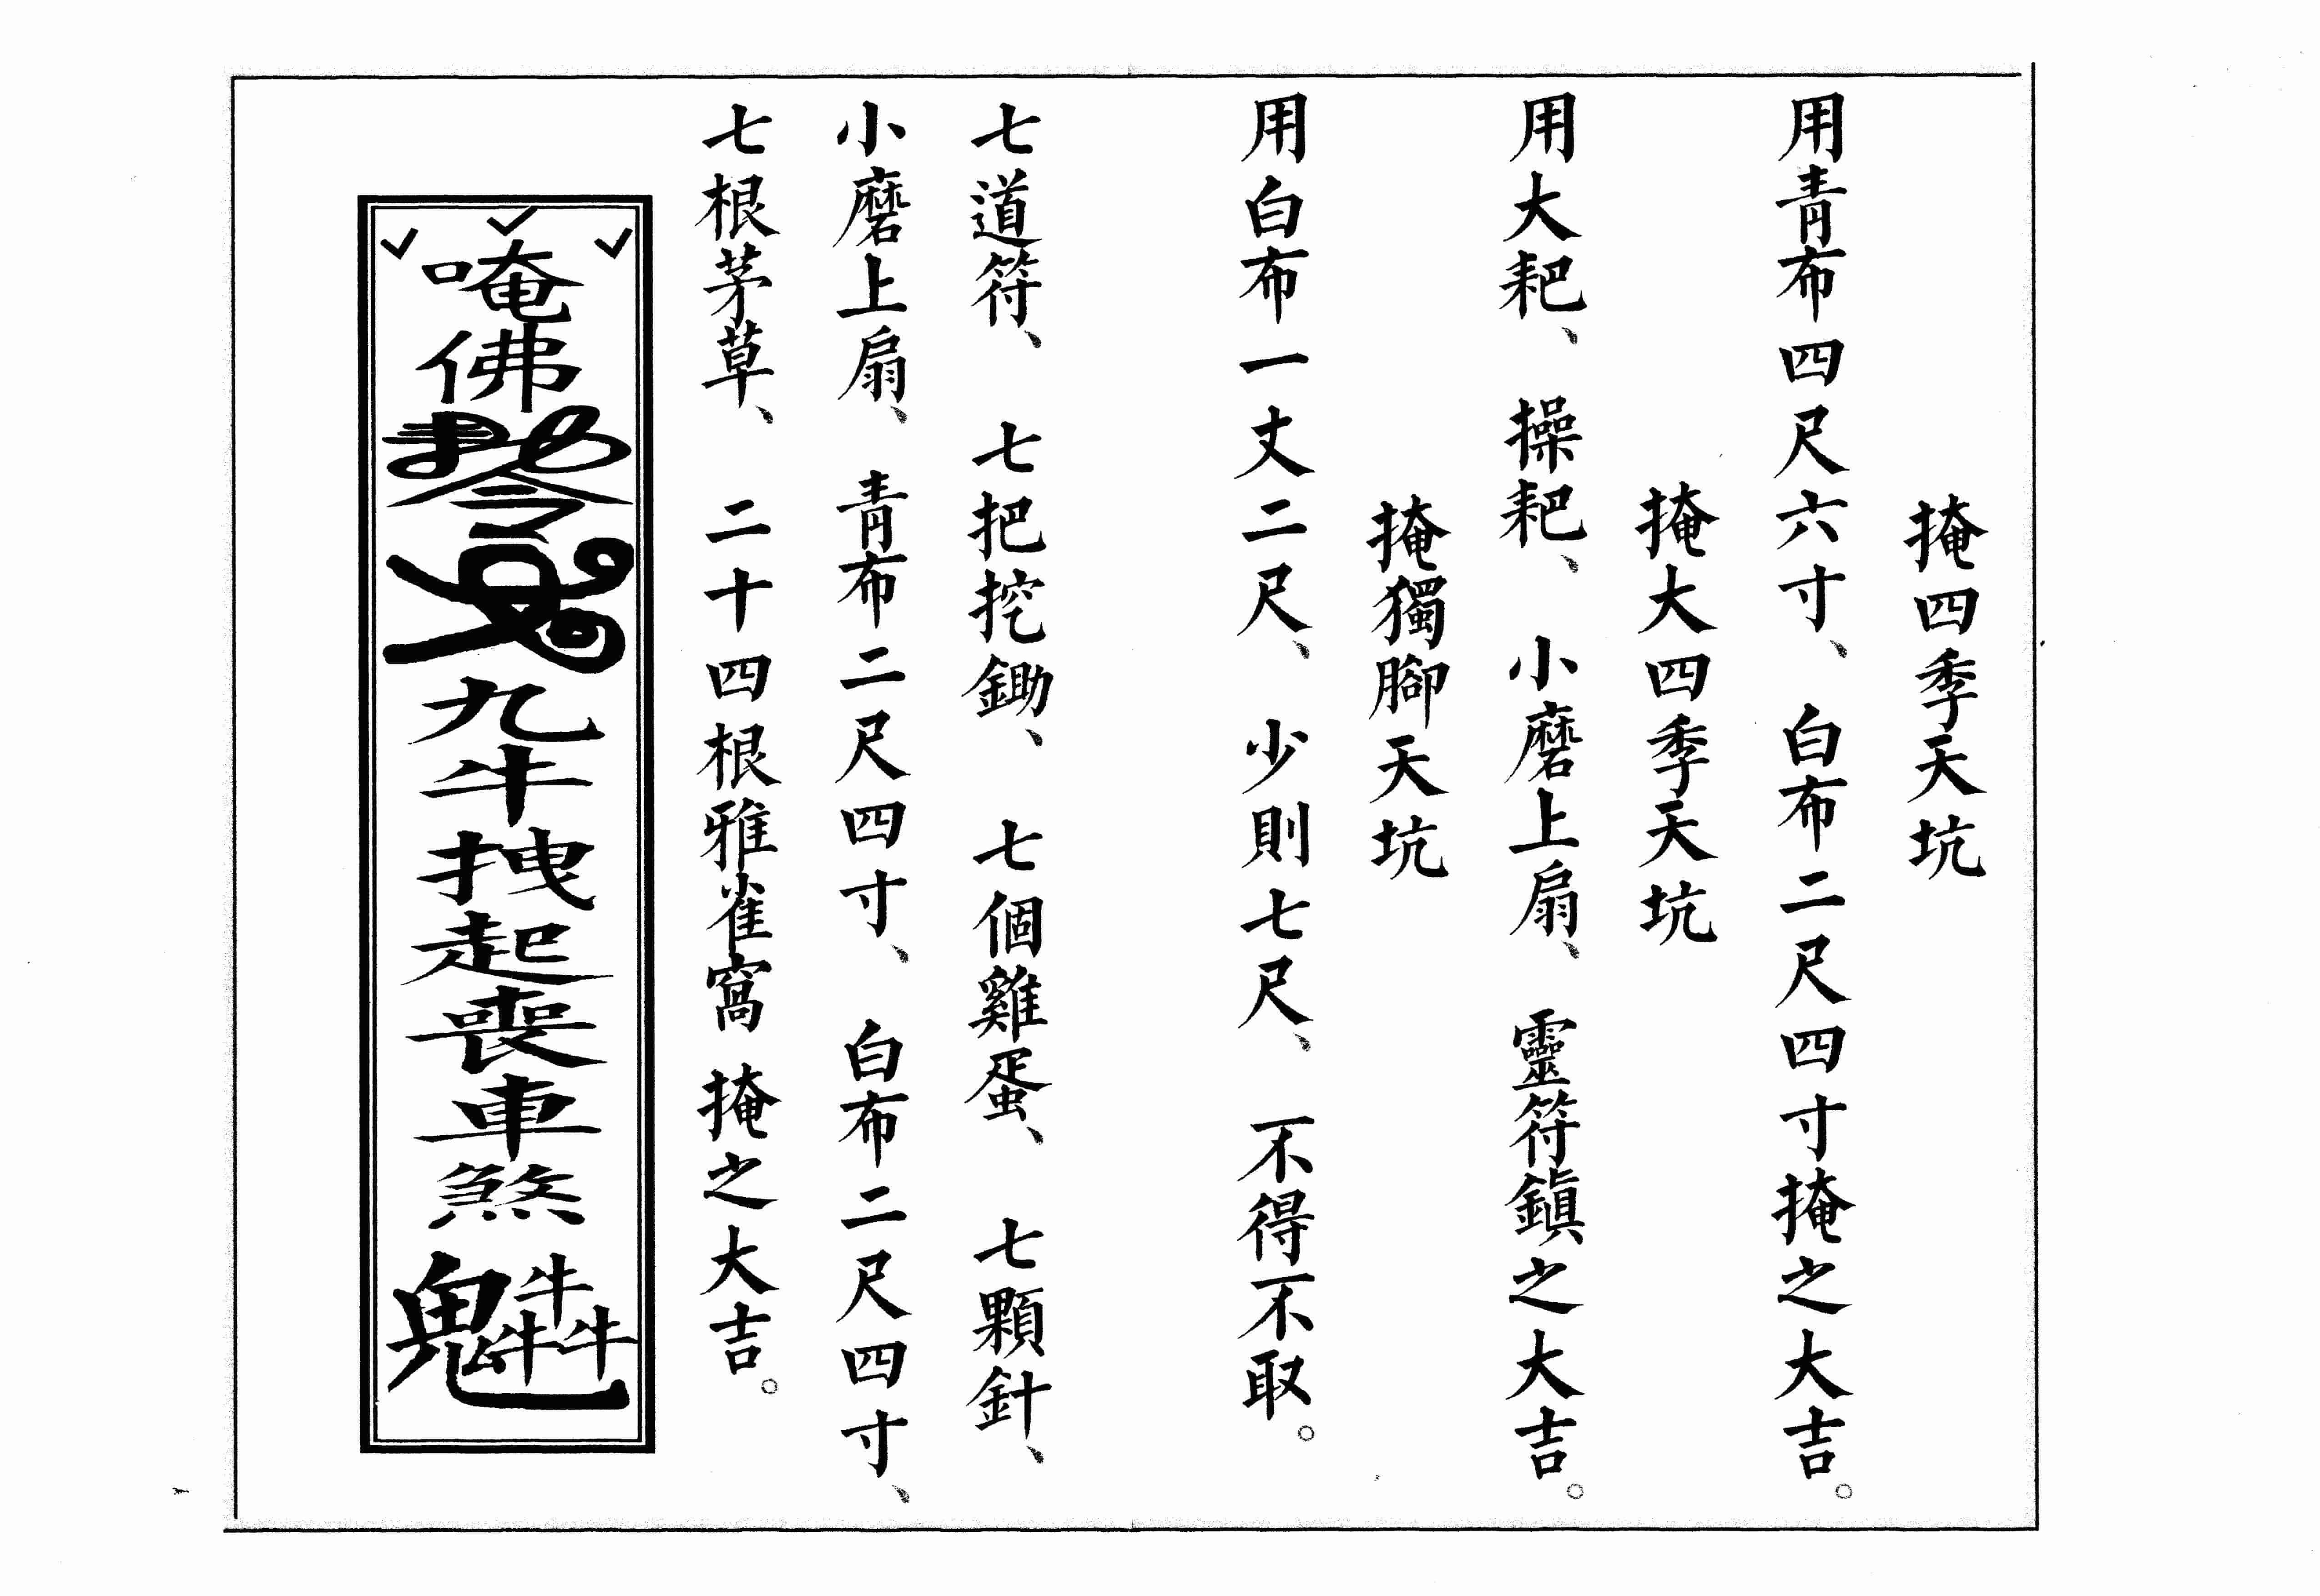 掩四季天坑
用青布四尺六寸、白布二尺四寸掩之大吉。
掩大四季天坑
用大耙、操耙、小磨上扇、靈符鎮之大吉。
掩獨腳天坑
用白布一丈二尺、少則七尺、不得不取。
七道符、七把挖鋤、七個雞蛋、七顆針、
小磨上扇、青布二尺四寸、白布二尺四寸、
七根茅草、二十四根雅雀窩掩之大吉。
唵佛
九牛拽起喪車煞